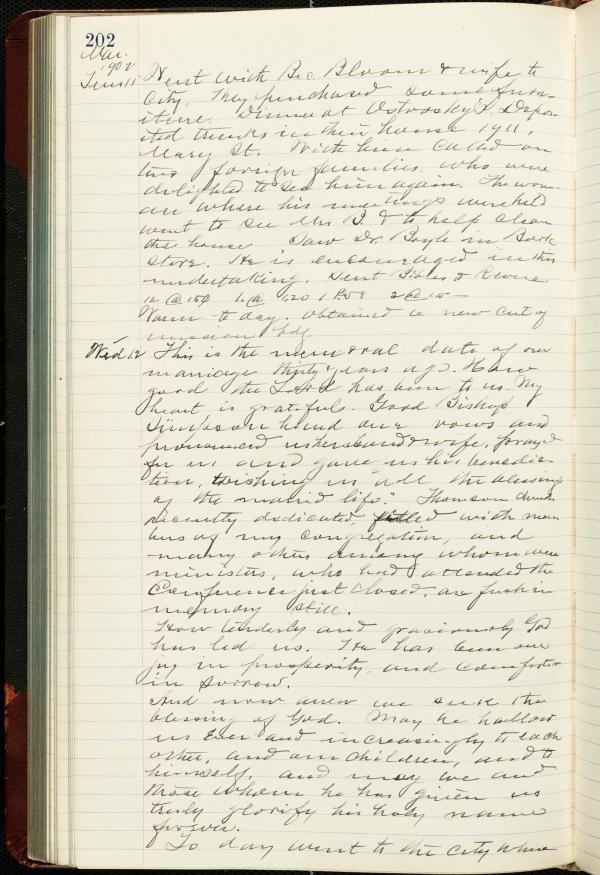 202
Mar.
1902
Tues 11 Went with Bro. Bloom & wife to
City. They purchased some furn-
iture. Dinner at Ostrosky's. Depos-
ited trunks in their house 1911,
Mary St. With him called on
two foreign families who were
delighted to see him again. The wom-
an where his meetings were held
went to see Mrs B. & to help clean
the house. Saw Dr. Boyle in Book
store. He is encouraged in this
undertaking. Sent
12 @ 15¢ 1 @ 1.20 1 2 @ 15
Warm to day. Obtained a new cut of
mission bdg.
Wed 12 This is the memoral date of our
marriage thirty years ago. How
good the Lord has been to us. My
heart is grateful. Good Bishop
Simpson heard our vows and
pronounced us husband & wife, prayed
for us and gave us his benedic-
tion, wishing us "all the blessings
of the married life." Thomson church
recently dedicated, filled with mem
bers of my congregation, and
many others among whom were
ministers, who had attended the
Conference just closed, are fresh in
memory still.
How tenderly and graciously God
has led us. He has been our
joy in prosperity and comforter
in sorrow.
And now anew we seek the
blessing of God. May he hallow
us ever and increasingly to each
other, and our children, and to
himself, and may we and
those whom he has given us
truly glorify his holy name
forever.
To day went to the City where